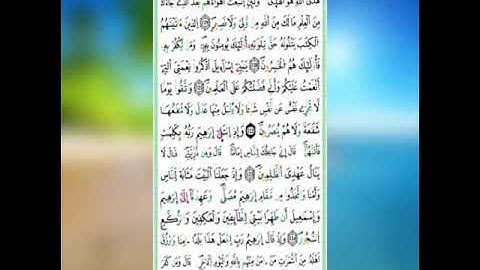 هُدَى ٱللَّهِ هُوَ ٱلْهُدَىٰ وَلَئِنِ ٱتَّبَعْتَ أَهْوَآءَهُم بَعْدَ ٱلَّذِى جَآءَكَ
مِنَ ٱلْعِلْمِ مَا لَكَ مِنَ ٱللَّهِ مِن وَلِىٍّ وَلَا نَصِيرٍ ١٢٠ ٱلَّذِينَ ءَاتَيْنَٰهُمُ
ٱلْكِتَٰبَ يَتْلُونَهُۥ حَقَّ تِلَاوَتِهِۦٓ أُو۟لَٰٓئِكَ يُؤْمِنُونَ بِهِۦ وَمَن يَكْفُرْ بِهِۦ
فَأُو۟لَٰٓئِكَ هُمُ ٱلْخَٰسِرُونَ ١٢١ يَٰبَنِىٓ إِسْرَٰٓءِيلَ ٱذْكُرُوا۟ نِعْمَتِىَ ٱلَّتِىٓ
أَنْعَمْتُ عَلَيْكُمْ وَأَنِّى فَضَّلْتُكُمْ عَلَى ٱلْعَٰلَمِينَ ١٢٢ وَٱتَّقُوا۟ يَوْمًا
لَّا تَجْزِى نَفْسٌ عَن نَّفْسٍ شَيْـًٔا وَلَا يُقْبَلُ مِنْهَا عَدْلٌ وَلَا تَنفَعُهَا
شَفَٰعَةٌ وَلَا هُمْ يُنصَرُونَ ١٢٣ وَإِذِ ٱبْتَلَىٰٓ إِبْرَٰهِـۧمَ رَبُّهُۥ بِكَلِمَٰتٍ
فَأَتَمَّهُنَّ قَالَ إِنِّى جَاعِلُكَ لِلنَّاسِ إِمَامًا قَالَ وَمِن ذُرِّيَّتِى قَالَ لَا
يَنَالُ عَهْدِى ٱلظَّٰلِمِينَ ١٢٤ وَإِذْ جَعَلْنَا ٱلْبَيْتَ مَثَابَةً لِّلنَّاسِ
وَأَمْنًا وَٱتَّخِذُوا۟ مِن مَّقَامِ إِبْرَٰهِـۧمَ مُصَلًّى وَعَهِدْنَآ إِلَىٰٓ إِبْرَٰهِـۧمَ
وَإِسْمَٰعِيلَ أَن طَهِّرَا بَيْتِىَ لِلطَّآئِفِينَ وَٱلْعَٰكِفِينَ وَٱلرُّكَّعِ
ٱلسُّجُودِ ١٢٥ وَإِذْ قَالَ إِبْرَٰهِـۧمُ رَبِّ ٱجْعَلْ هَٰذَا بَلَدًا ءَامِنًا وَٱرْزُقْ
أَهْلَهُۥ مِنَ ٱلثَّمَرَٰتِ مَنْ ءَامَنَ مِنْهُم بِٱللَّهِ وَٱلْيَوْمِ ٱلْـَٔاخِرِ قَالَ وَمَن كَفَرَ